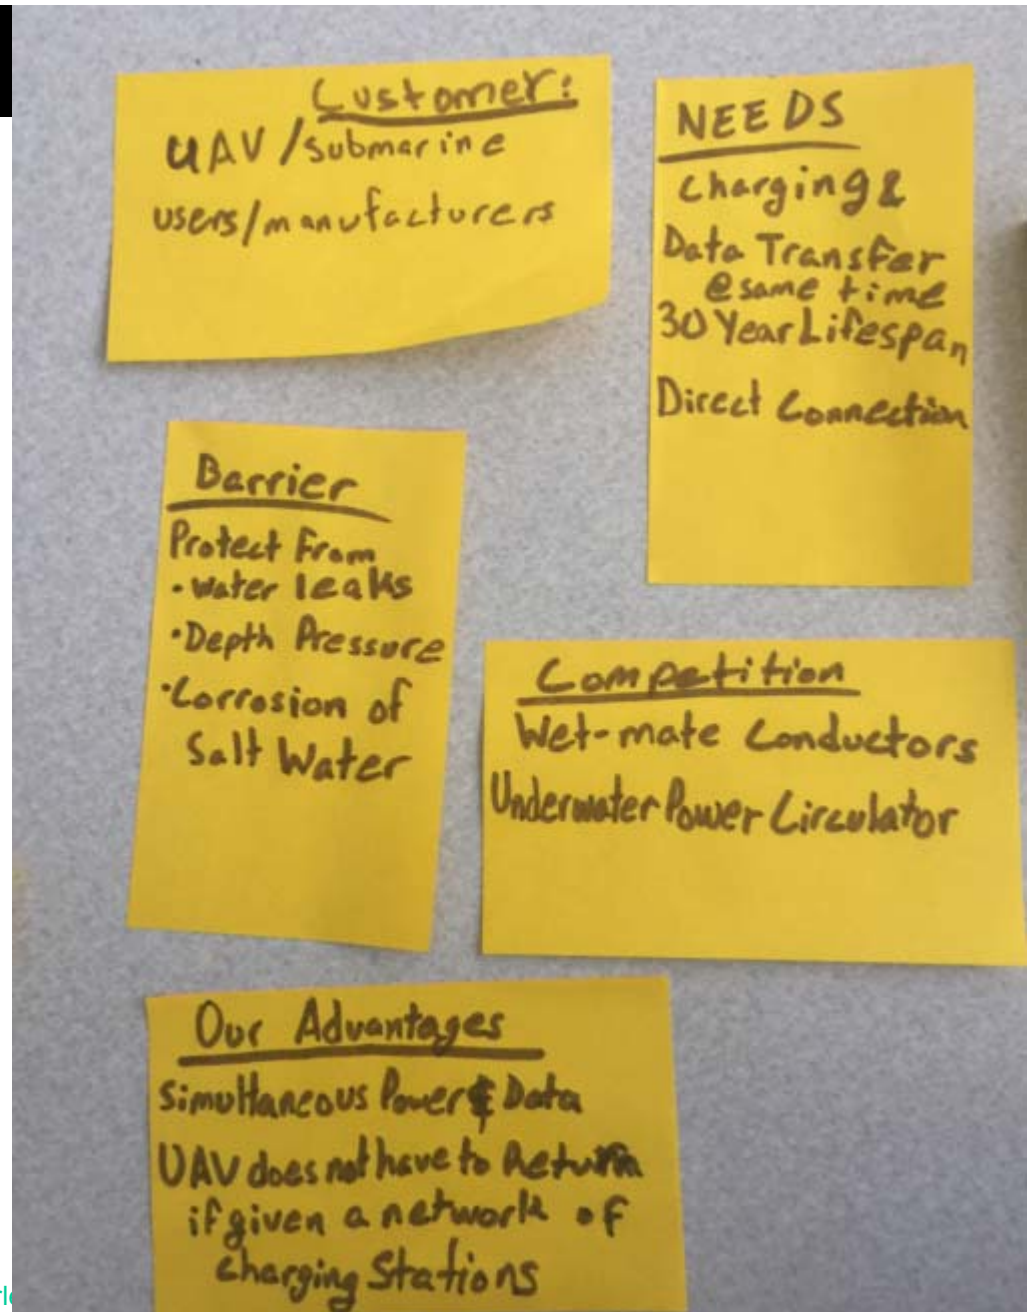 Customer:
UAV/submarine
users/manufacturers
NEEDS
Charging &
Data Transfer
@ same time
30 Year Lifespan
Direct Connection
Barrier
Protect From
• water leaks
• Depth Pressure
• Corrosion of
Salt Water
Competition
Wet-mate Conductors
Underwater Power Circulator
Our Advantages
Simultaneous Power & Data
UAV does not have to Return
if given a network of
charging Stations